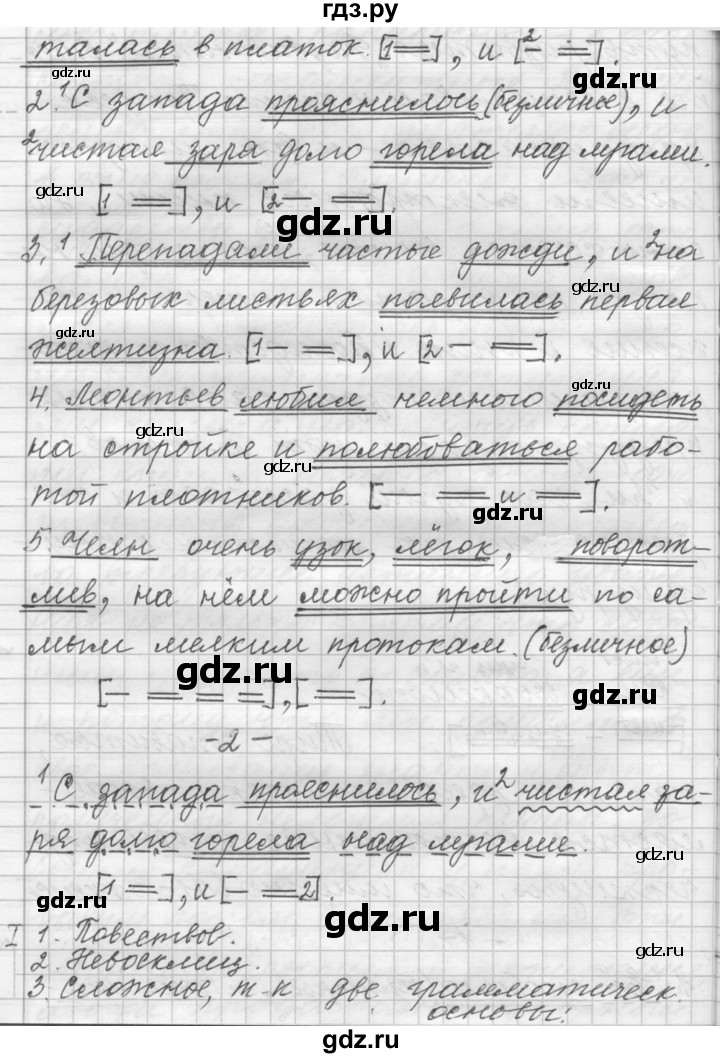 гдз.ру
талась в платок. [1 ═], и [2 – ═].
2. ¹С запада прояснилось (безличное), и
²чистая заря долго горела над мхами.
[1 ═], и [2 – ═].
3. ¹Перепадали частые дожди, и ²на
березовых листьях появилась первая
желтизна. [1 – ═], и [2 – ═].
4. Леонтьев любил немного посидеть
на стройке и полюбоваться рабо-
той плотников. [– ═ и ═].
5. Челн очень узок, лёгок, поворот-
лив, на нём можно пройти по са-
мым мелким протокам. (безличное)
[– ═ ═ ═], [═].
-2-
¹С запада прояснилось, и ²чистая за-
ря долго горела над мхами.
[1 ═], и [– ═ 2].
I 1. Повествов.
2. Невосклиц.
3. Сложное, т-к две грамматическ.
основы:
gdz.ru